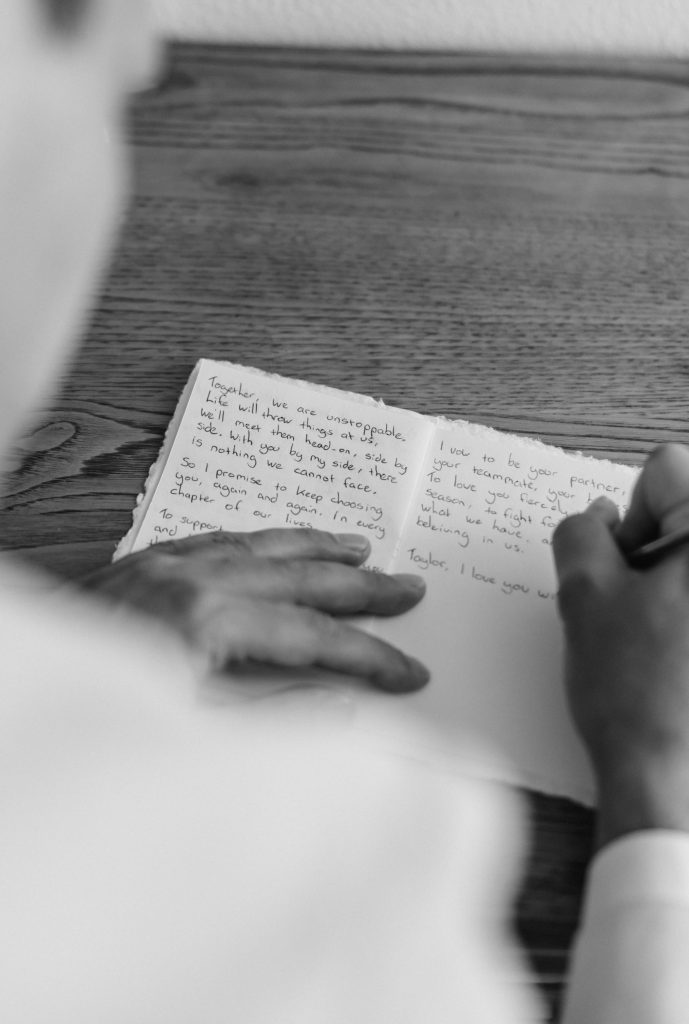 Together, we are unstoppable.
Life will throw things at us,
we'll meet them head-on, side by
side. With you by my side, there
is nothing we cannot face.
So I promise to keep choosing
you, again and again. In every
chapter of our lives.
To support
and
I vow to be your partner,
your teammate, your
To love you fiercely
season, to fight for
what we have, a
beleiving in us.
Taylor, I love you wi